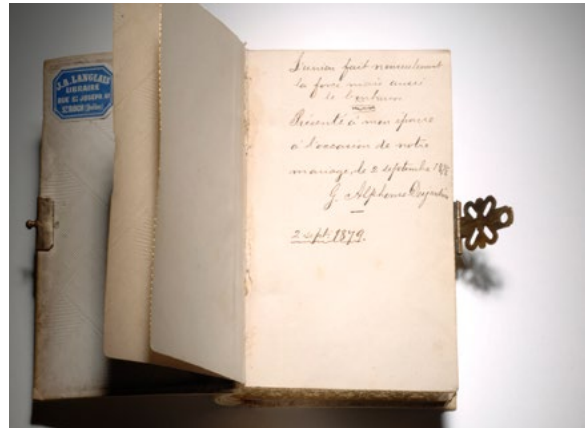 J.A. LANGLAIS
LIBRAIRE
RUE ST. JOSEPH
ST. ROCH (Québec)
L'union fait non seulement
la force mais aussi
le bonheur
Présenté à mon épouse
à l'occasion de notre
mariage, le 2 septembre
G. Alphonse Desjardins
2 sept. 1879.